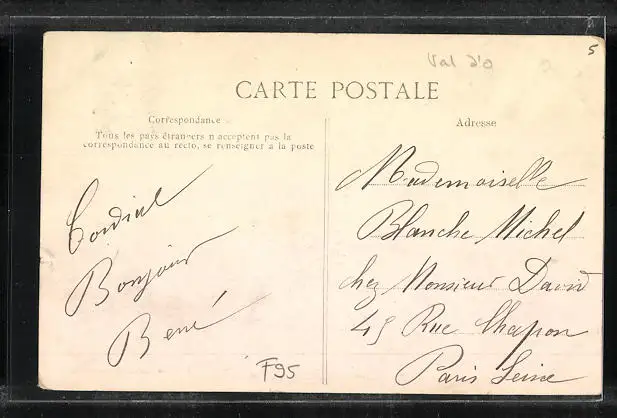 5
Val d'O
CARTE POSTALE
Correspondance
Tous les pays étrangers n'acceptent pas la
correspondance au recto, se renseigner à la poste
Adresse
Cordial
Bonjour
René
Mademoiselle
Blanche Michel
chez Monsieur David
45 Rue Chapon
Paris Seine
F95